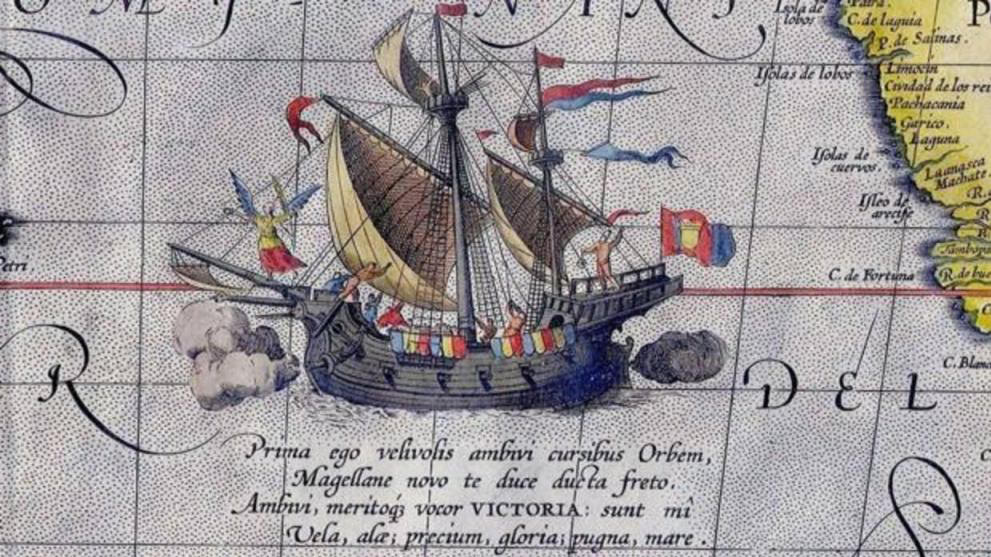 Isola de
lobos
C. de laguia
P. de Salinas.
Isolas de lobos
Limocin
Cividad de los rei
Pachacania
Garico.
Laguna
Isolas de
cuervos.
Laanasca
Machate.
Isleo de
arecife
Petri.
C. de Fortuna
R. de bue
R
DEL
C. Blanc
Prima ego velivolis ambivi cursibus Orbem,
Magellane novo te duce ducta freto.
Ambivi, meritoq́ꝫ vocor VICTORIA: sunt mî
Vela, alæ; precium, gloria; pugna, mare.